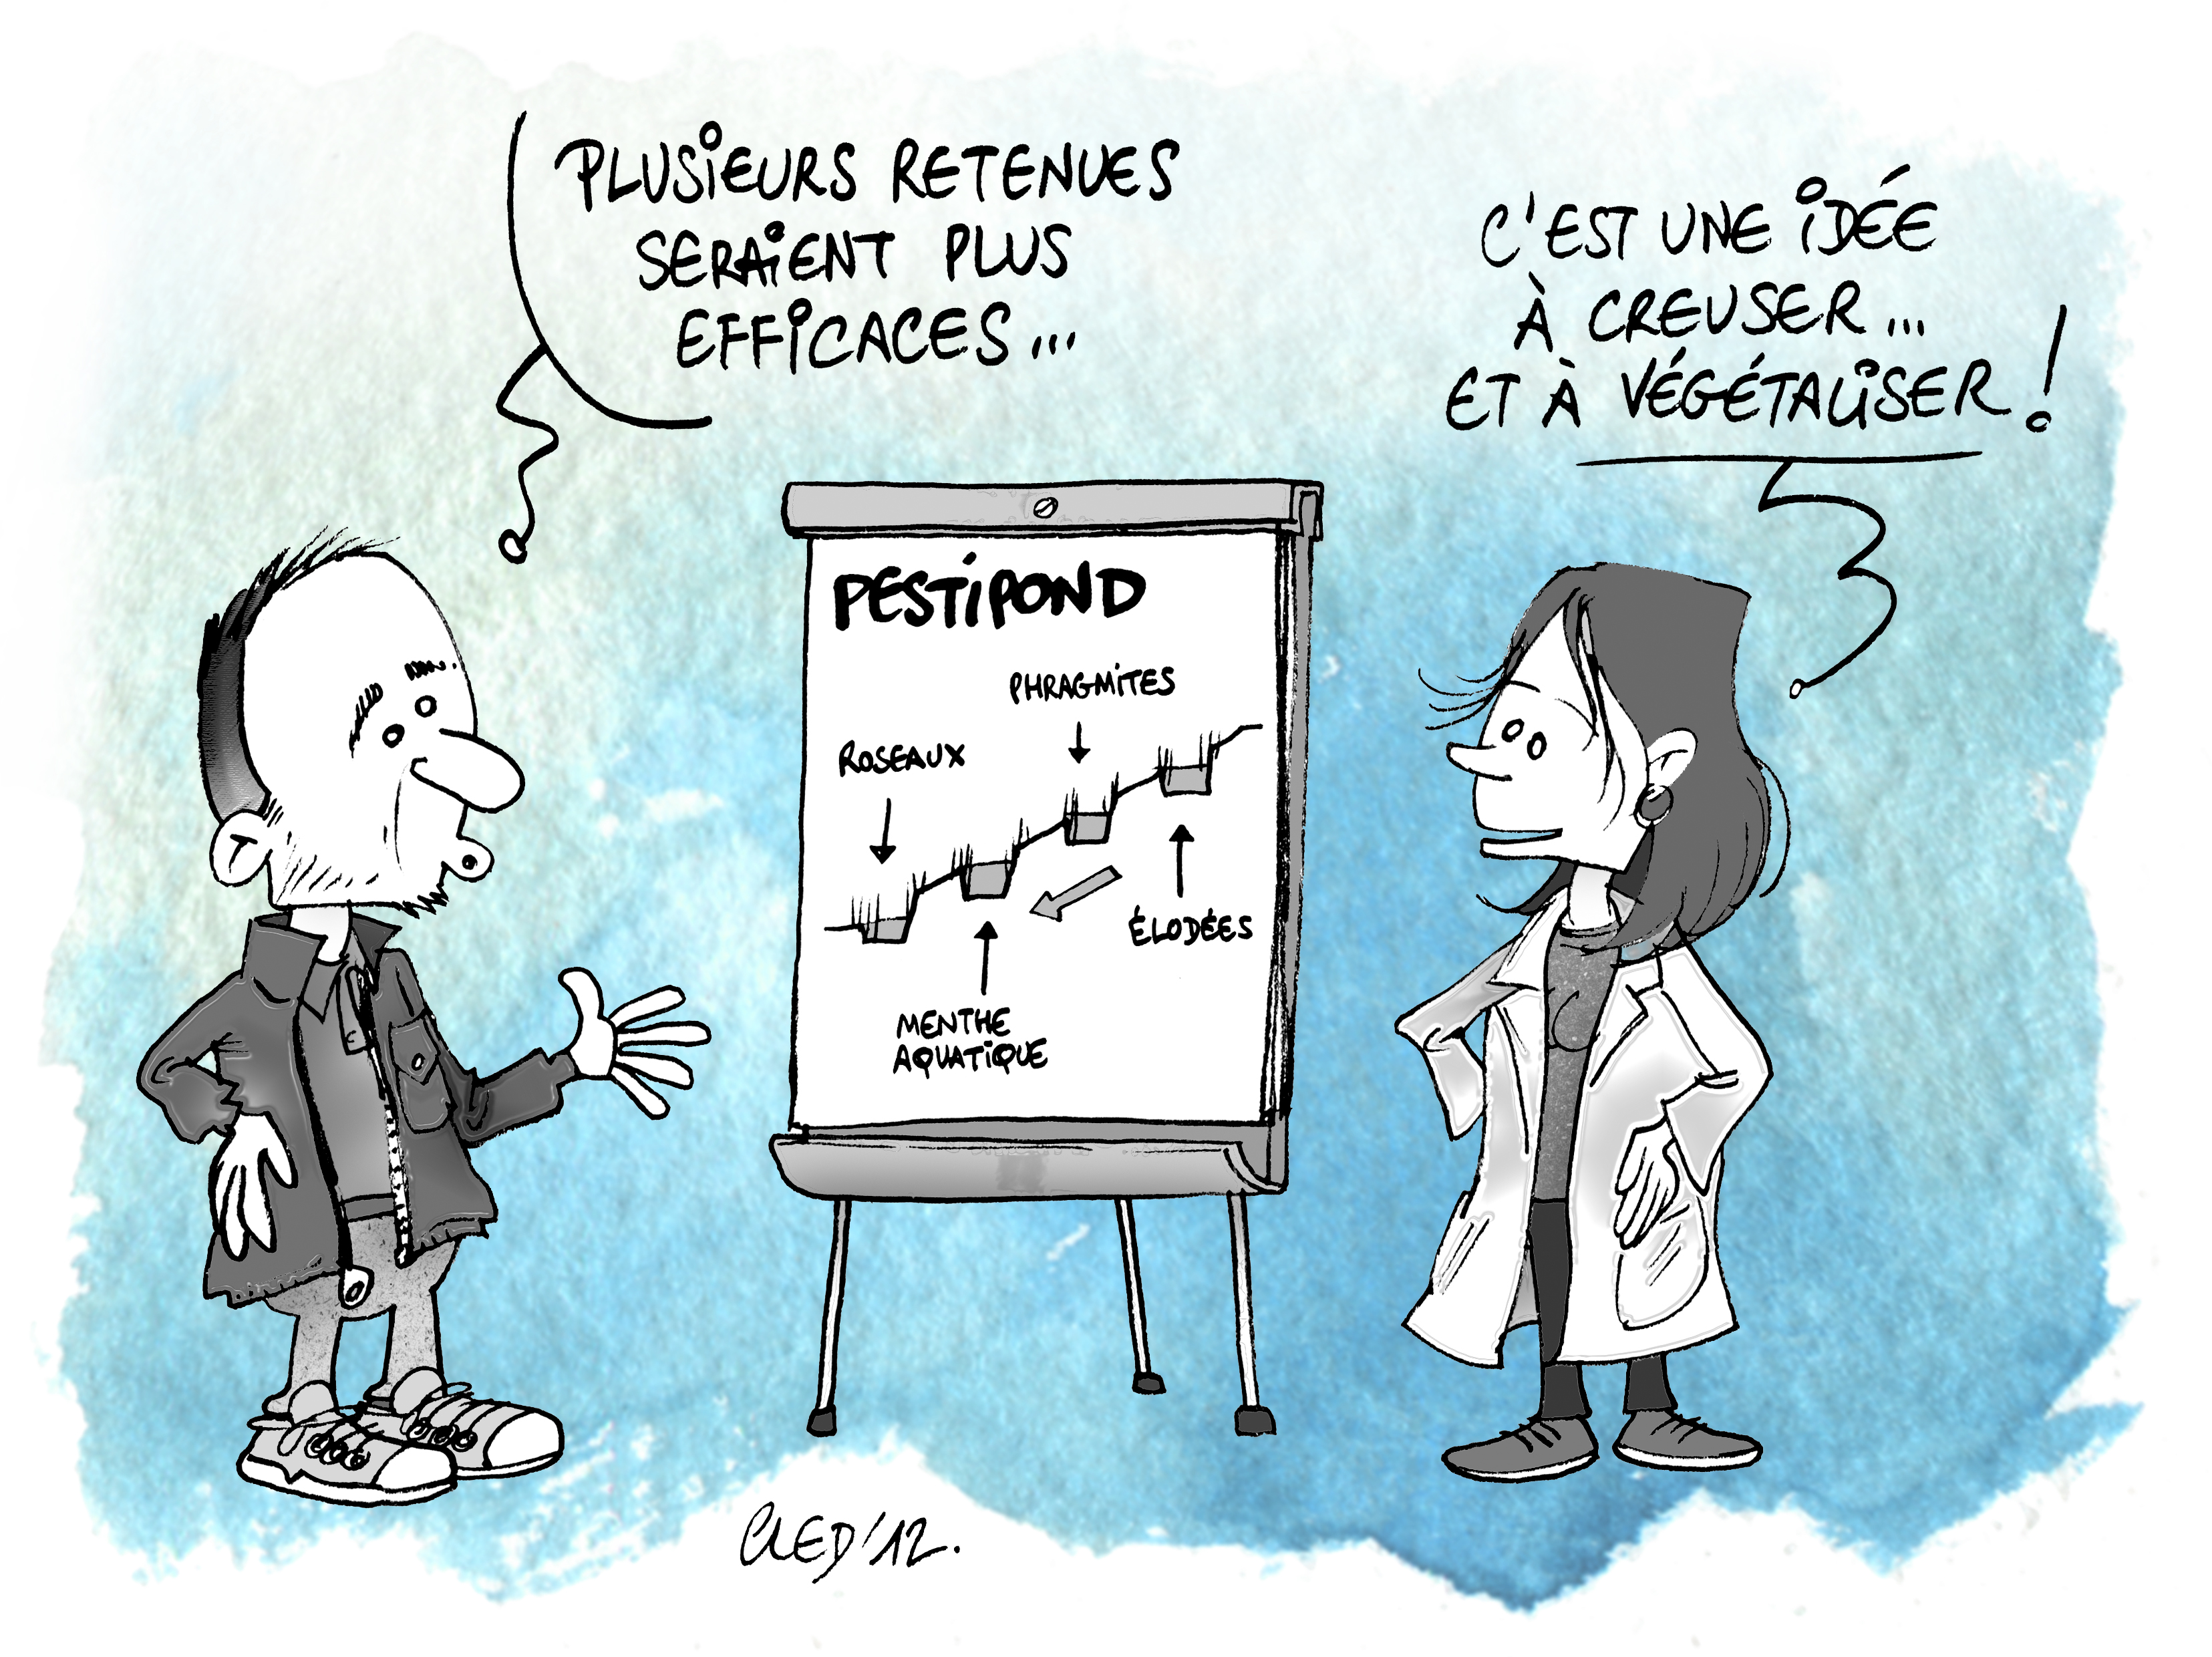 PLUSIEURS RETENUES
SERAIENT PLUS
EFFICACES...
C'EST UNE IDÉE
À CREUSER...
ET À VÉGÉTALISER !
PESTIPOND
PHRAGMITES
ROSEAUX
ÉLODÉES
MENTHE
AQUATIQUE
CLED'12.